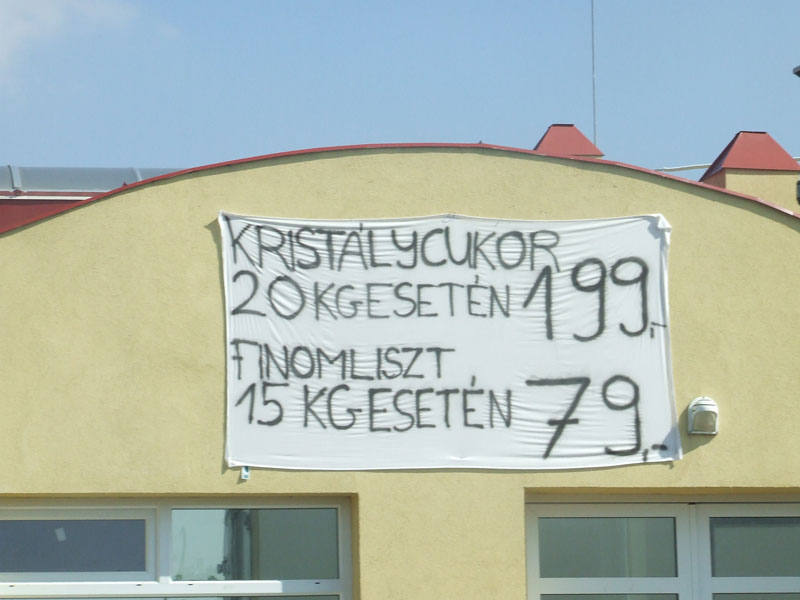 KRISTÁLYCUKOR
20 KG ESETÉN 199,-
FINOMLISZT
15 KG ESETÉN 79,-